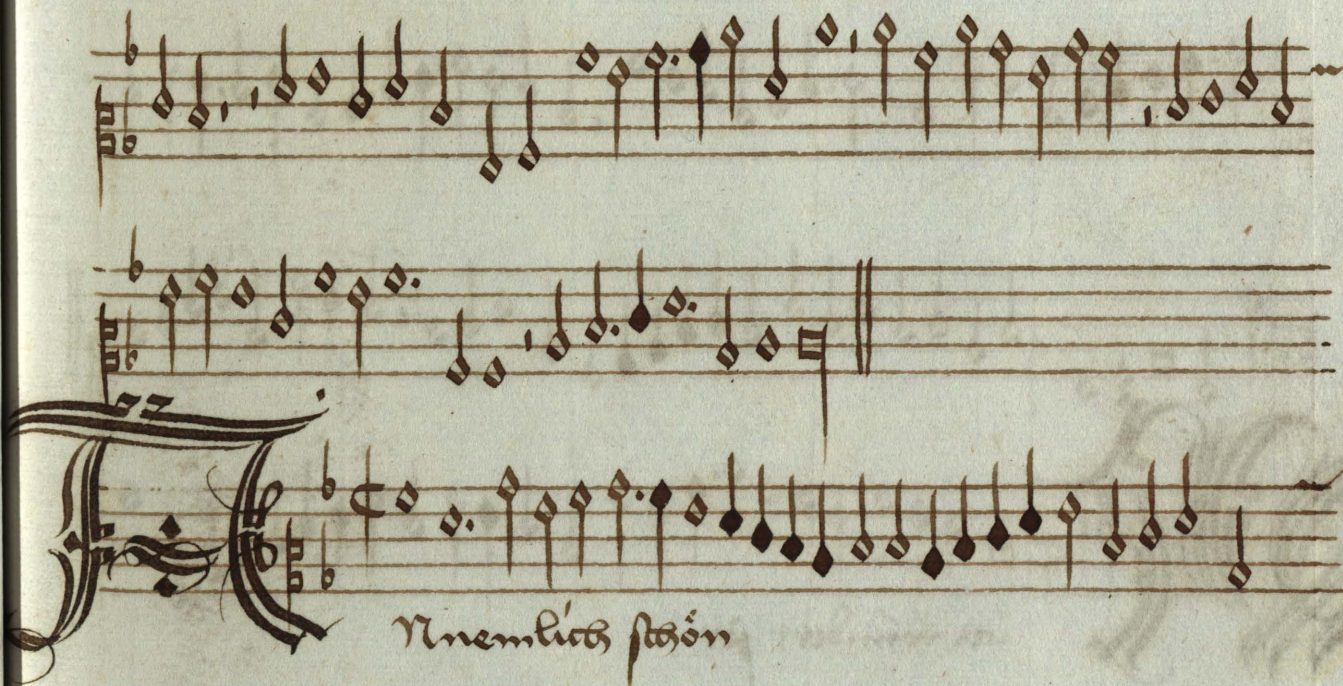 ANnemlich schön